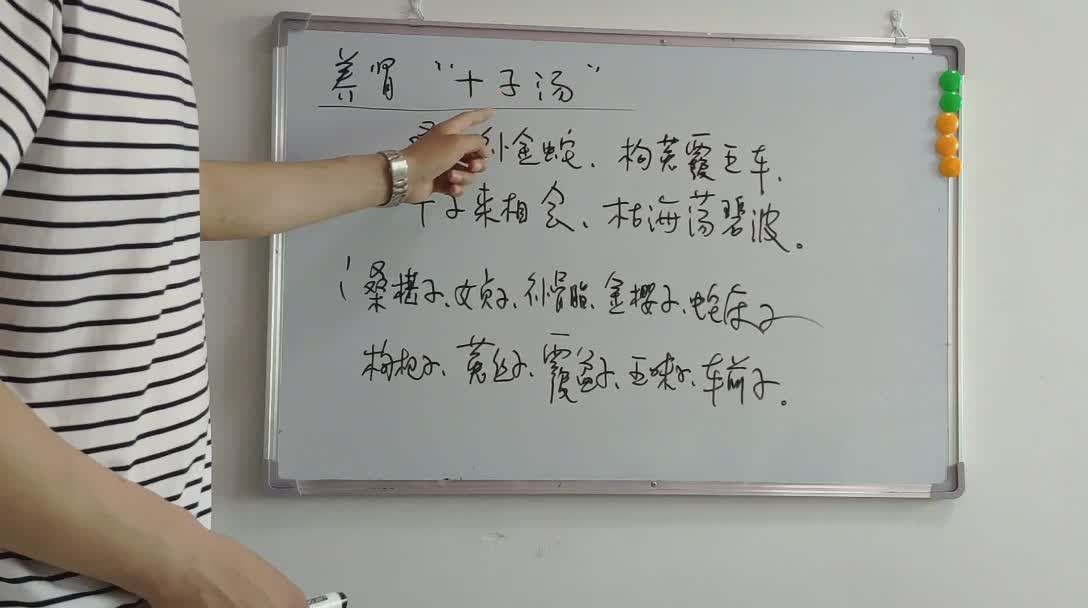 养肾“十子汤”
桑补金蛇、枸菟覆五车、
十子来相会、枯海荡碧波。
桑椹子、女贞子、补骨脂、金樱子、蛇床子
枸杞子、菟丝子、覆盆子、五味子、车前子。